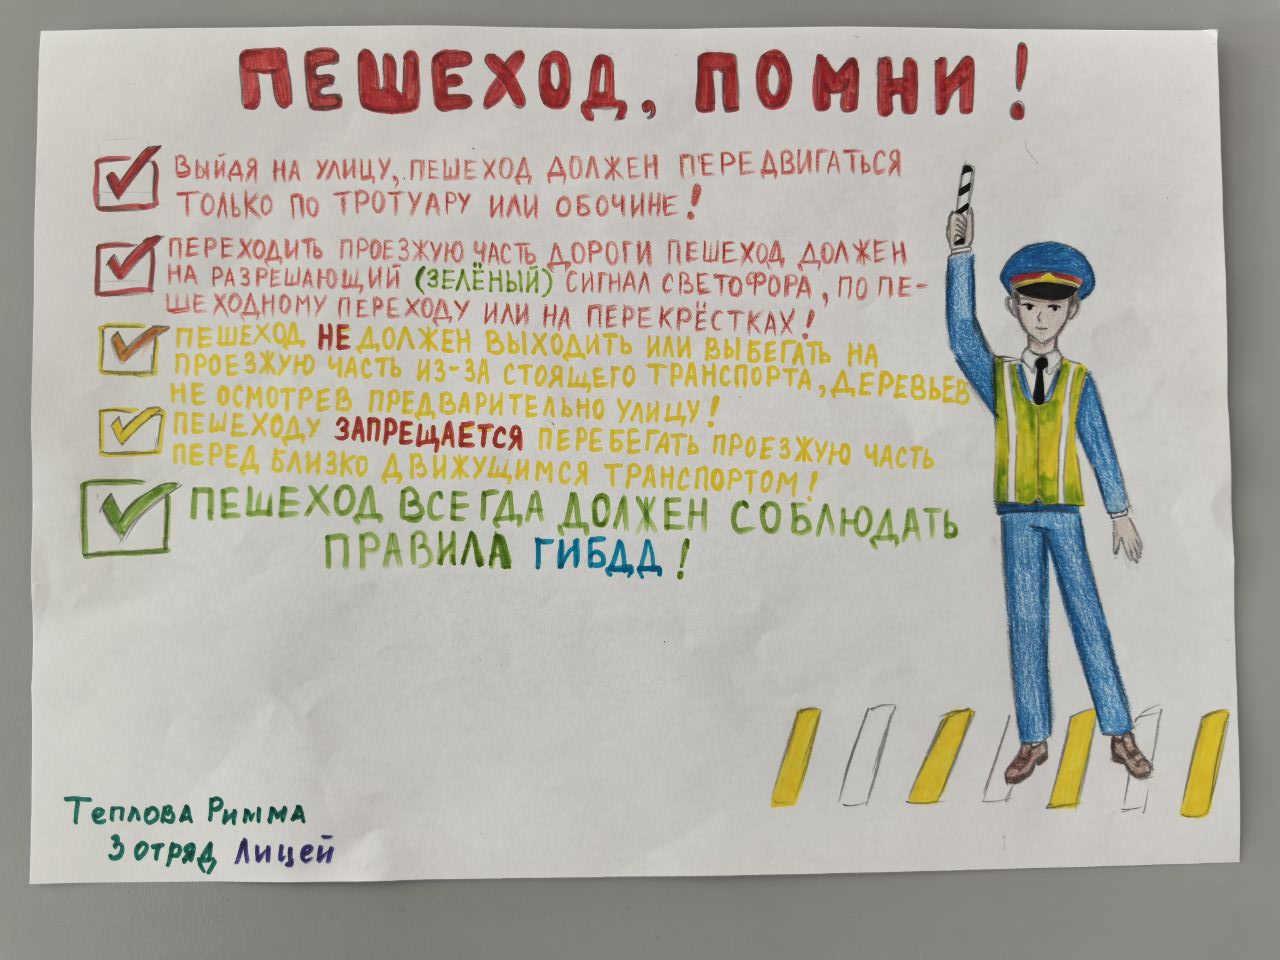 ПЕШЕХОД, ПОМНИ!
ВЫЙДЯ НА УЛИЦУ, ПЕШЕХОД ДОЛЖЕН ПЕРЕДВИГАТЬСЯ
ТОЛЬКО ПО ТРОТУАРУ ИЛИ ОБОЧИНЕ!
ПЕРЕХОДИТЬ ПРОЕЗЖУЮ ЧАСТЬ ДОРОГИ ПЕШЕХОД ДОЛЖЕН
НА РАЗРЕШАЮЩИЙ (ЗЕЛЁНЫЙ) СИГНАЛ СВЕТОФОРА, ПО ПЕ-
ШЕХОДНОМУ ПЕРЕХОДУ ИЛИ НА ПЕРЕКРЁСТКАХ!
ПЕШЕХОД НЕ ДОЛЖЕН ВЫХОДИТЬ ИЛИ ВЫБЕГАТЬ НА
ПРОЕЗЖУЮ ЧАСТЬ ИЗ-ЗА СТОЯЩЕГО ТРАНСПОРТА, ДЕРЕВЬЕВ
НЕ ОСМОТРЕВ ПРЕДВАРИТЕЛЬНО УЛИЦУ!
ПЕШЕХОДУ ЗАПРЕЩАЕТСЯ ПЕРЕБЕГАТЬ ПРОЕЗЖУЮ ЧАСТЬ
ПЕРЕД БЛИЗКО ДВИЖУЩИМСЯ ТРАНСПОРТОМ!
ПЕШЕХОД ВСЕГДА ДОЛЖЕН СОБЛЮДАТЬ
ПРАВИЛА ГИБДД!
Теплова Римма
3 отряд Лицей